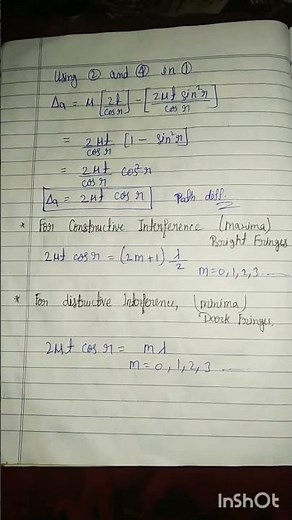 Using ② and ④ in ①
Δa = μ [2t/cos r] - [2μt sin²r/cos r]
= 2μt/cos r [1 - sin²r]
= 2μt/cos r cos²r
Δa = 2μt cos r Path diff.
* For Constructive Interference (maxima)
Bright Fringes
2μt cos r = (2m+1) λ/2
m=0,1,2,3......
* For distructive Interference, (minima)
Dark Fringes,
2μt cos r = mλ
m=0,1,2,3......
InShOt